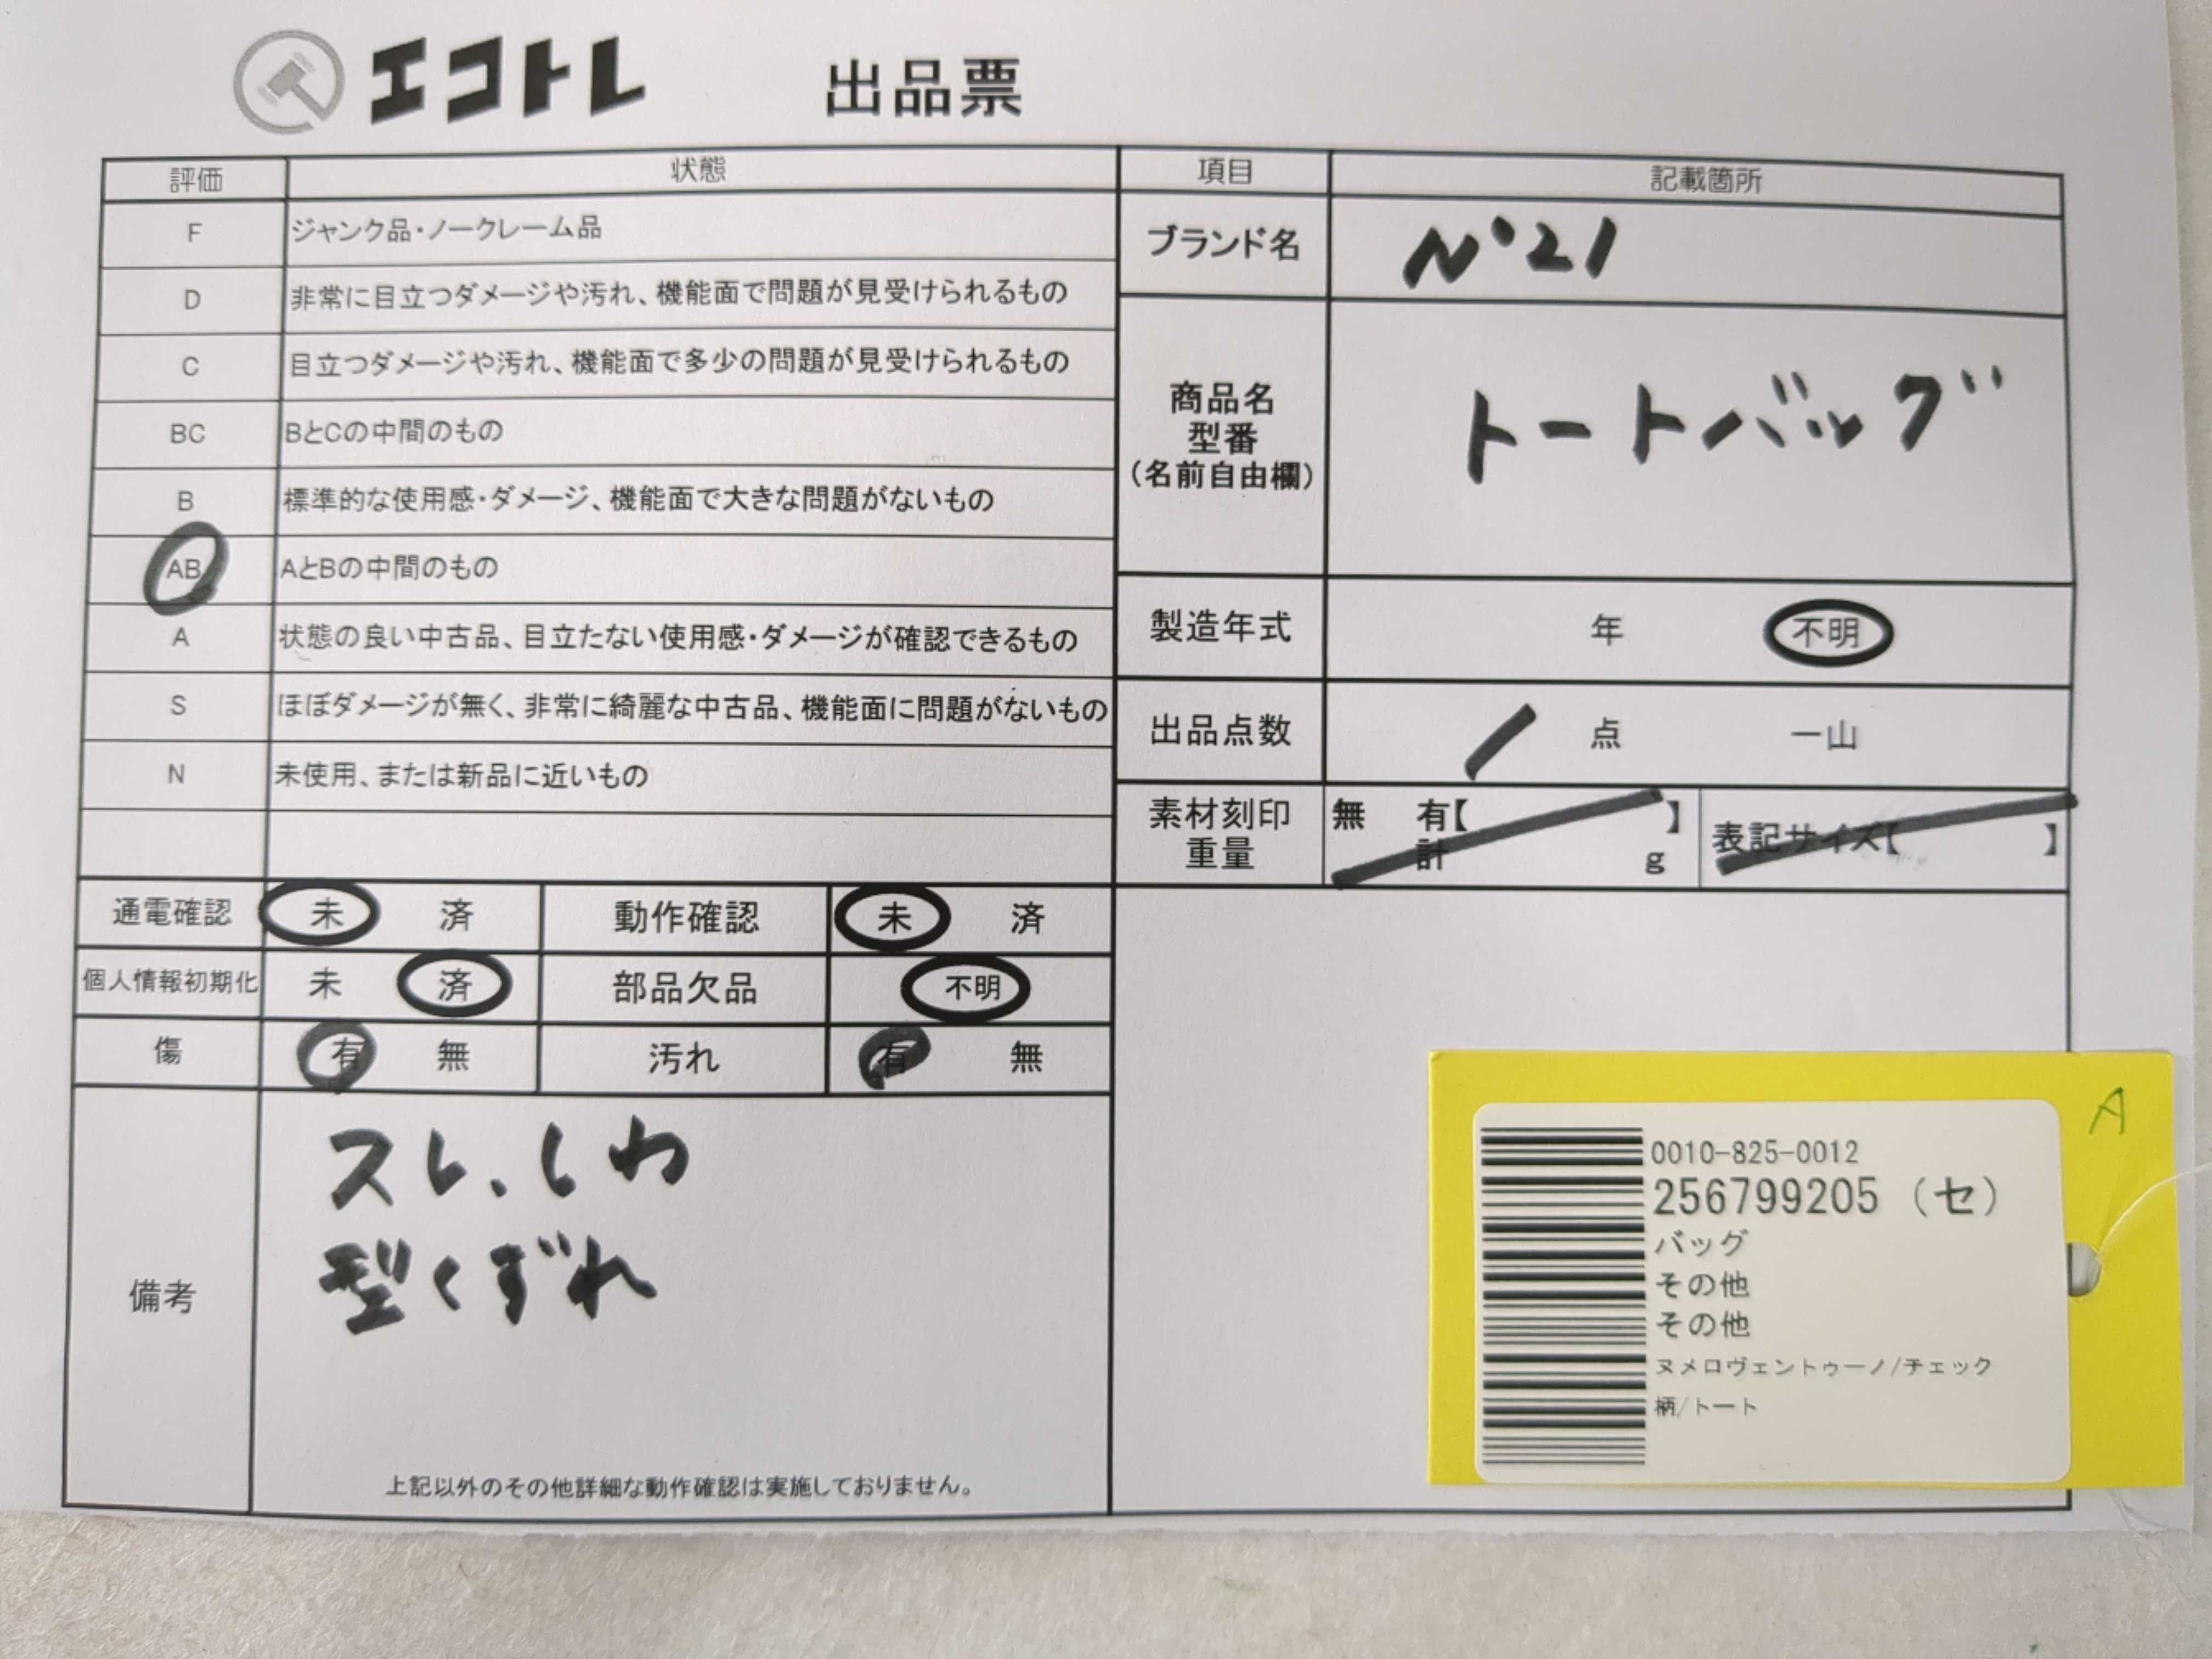 エコトレ 出品票
評価 状態
F ジャンク品・ノークレーム品
D 非常に目立つダメージや汚れ、機能面で問題が見受けられるもの
C 目立つダメージや汚れ、機能面で多少の問題が見受けられるもの
BC BとCの中間のもの
B 標準的な使用感・ダメージ、機能面で大きな問題がないもの
AB AとBの中間のもの
A 状態の良い中古品、目立たない使用感・ダメージが確認できるもの
S ほぼダメージが無く、非常に綺麗な中古品、機能面に問題がないもの
N 未使用、または新品に近いもの
項目 記載箇所
ブランド名 N°21
商品名
型番
(名前自由欄)
トートバッグ
製造年式 年 不明
出品点数 1 点 一山
素材刻印 無 有【 】
重量 計 g
表記サイズ【 】
通電確認 未 済 動作確認 未 済
個人情報初期化 未 済 部品欠品 不明
傷 有 無 汚れ 有 無
備考
スレ、しわ
型くずれ
上記以外のその他詳細な動作確認は実施しておりません。
A
0010-825-0012
256799205 (セ)
バッグ
その他
その他
ヌメロヴェントゥーノ/チェック
柄/トート